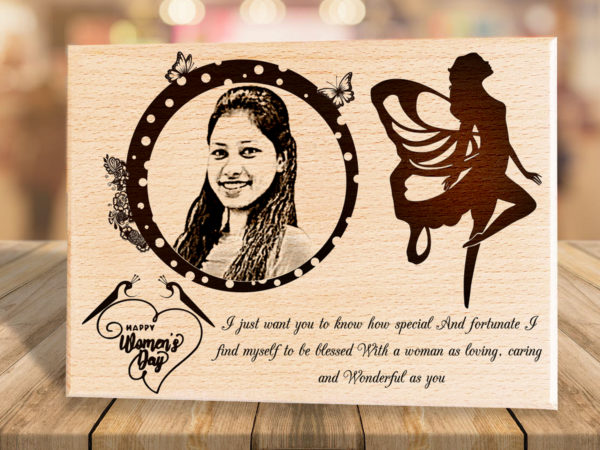 HAPPY
Women's
Day
I just want you to know how special And fortunate I
find myself to be blessed With a woman as loving, caring
and Wonderful as you